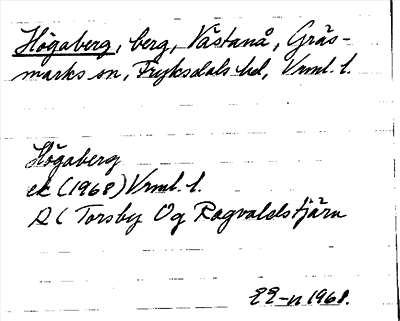 Högaberg, berg, Västanå, Gräs-
marks sn, Fryksdals hd, Vrml. l.
Högaberg
ek (1968) Vrml. l.
AC Torsby Og Ragvaldstjärn
EE-n 1968.